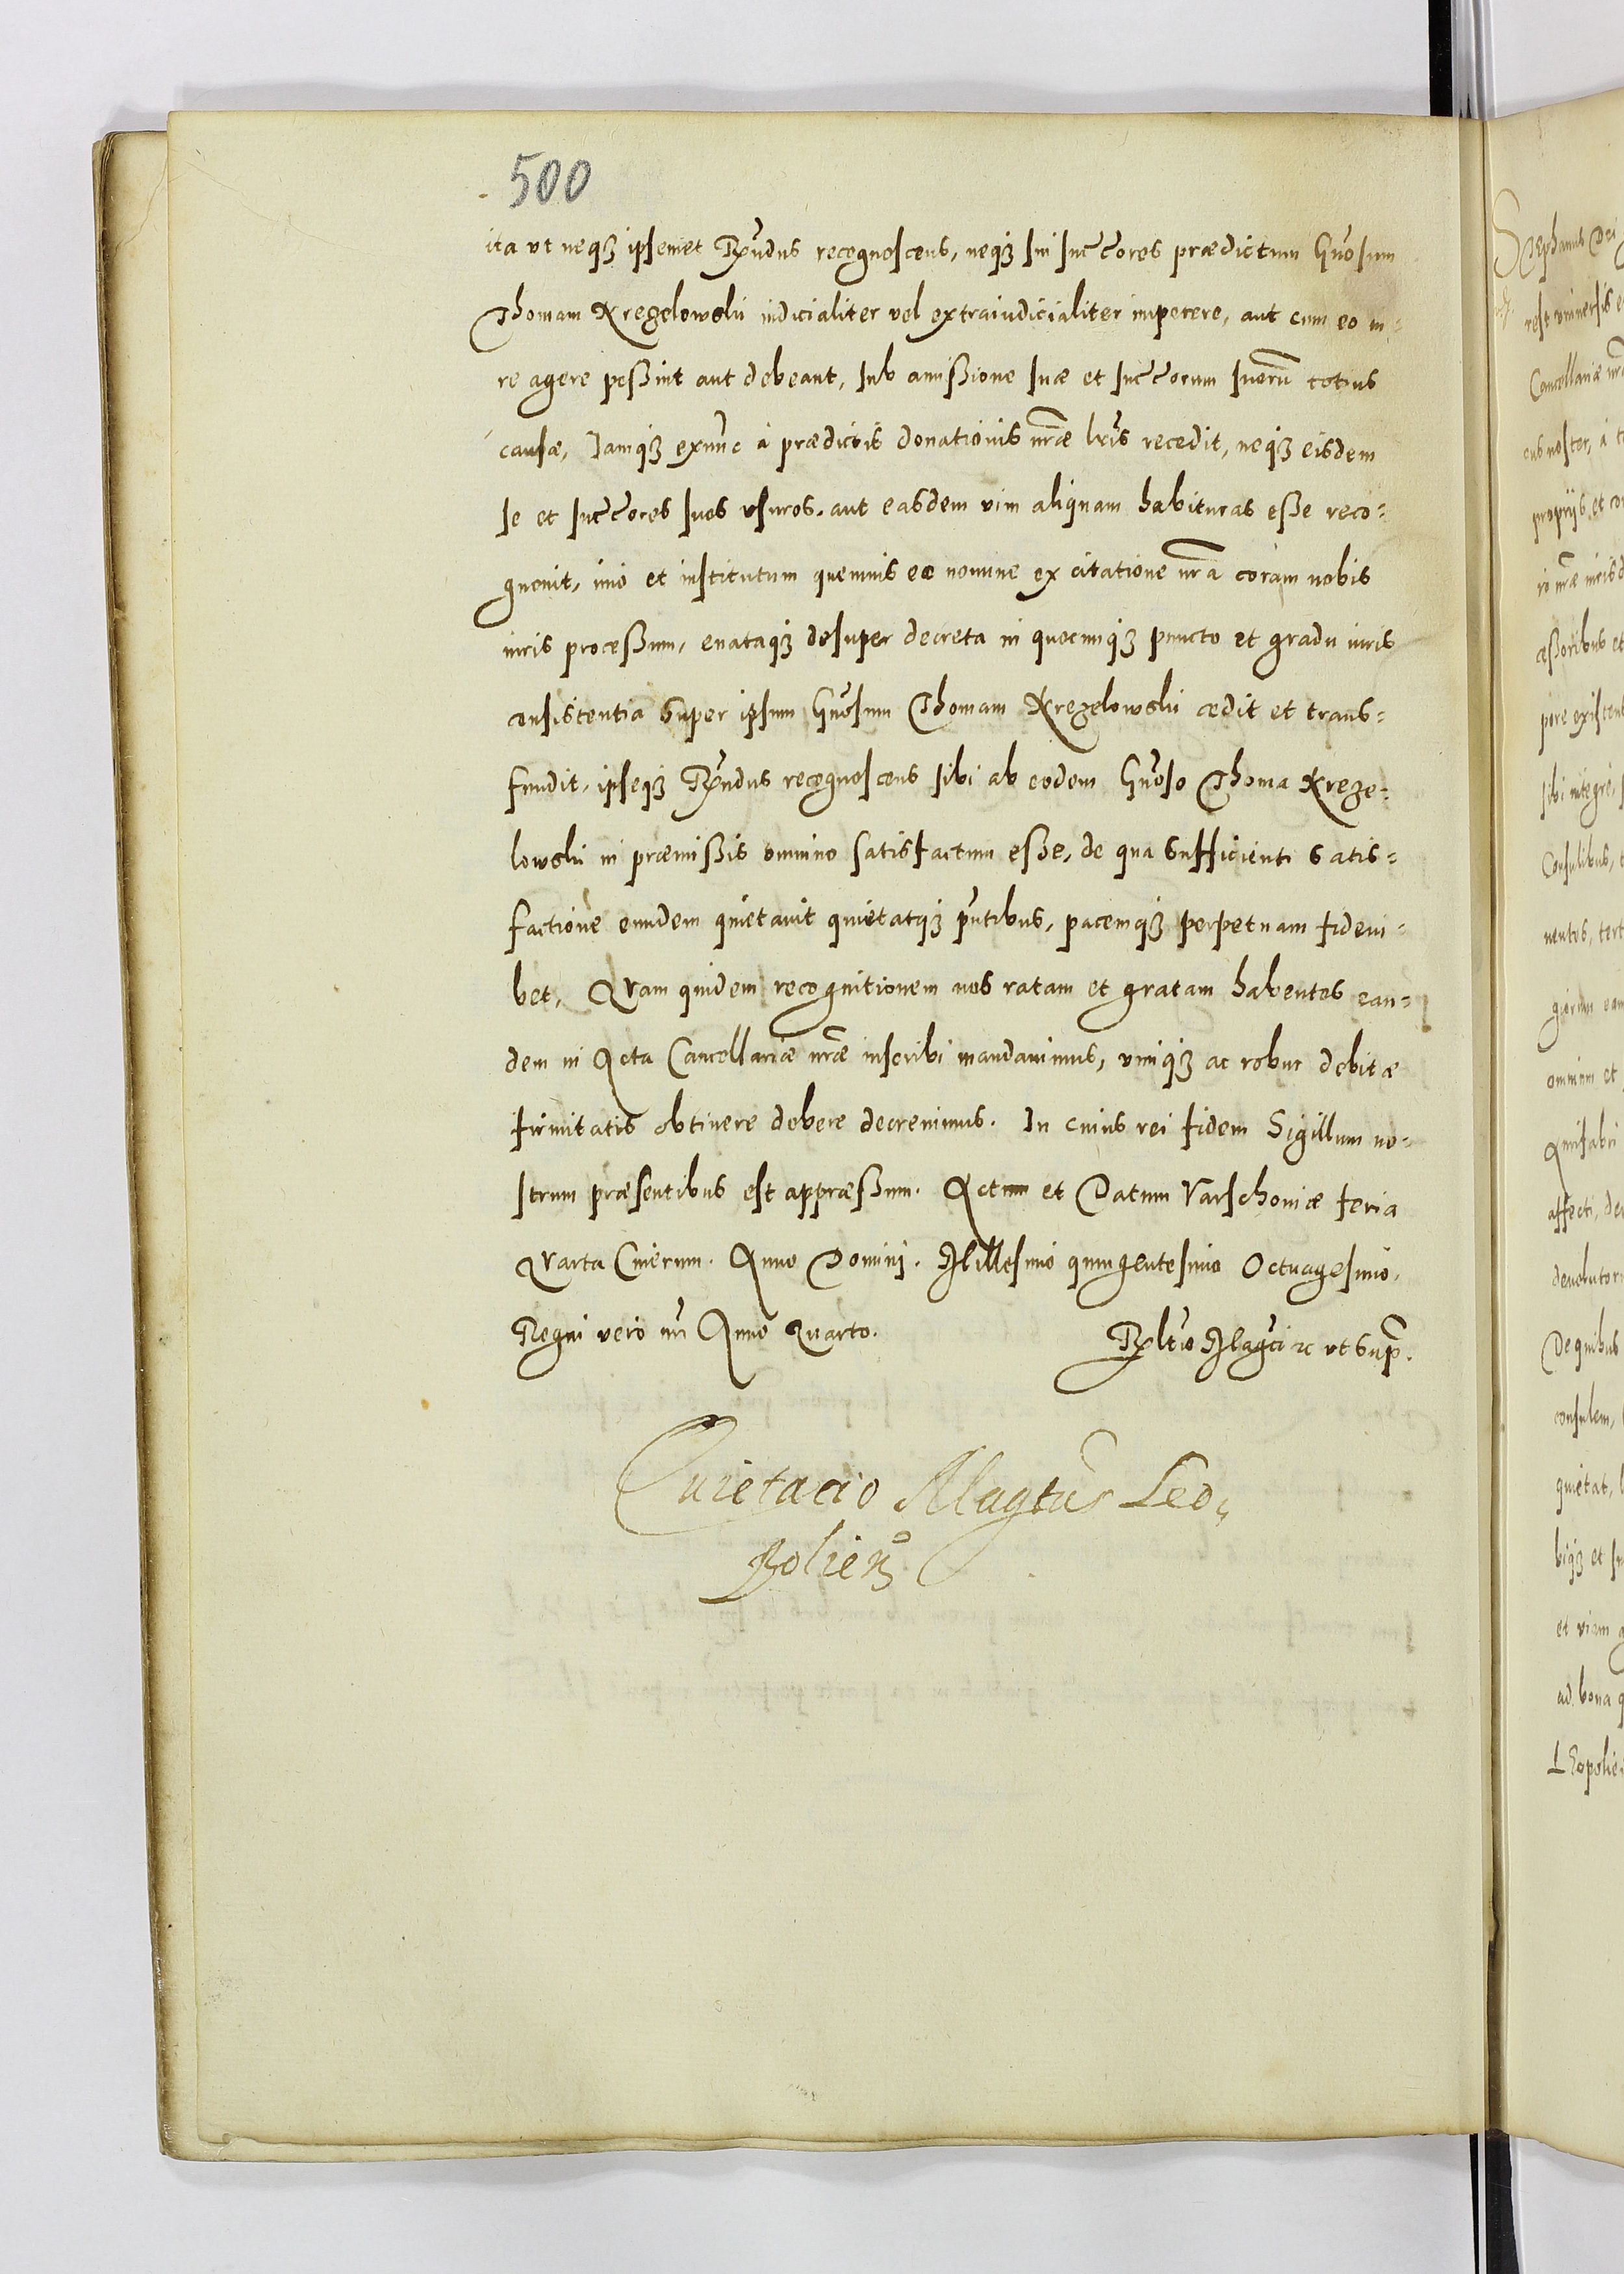 500
ita ut neq3 ipsemet Rñdus recognoscens, neq3 sui succores prædictum Gñosum
Thomam Krezelowski iudicialiter vel extraiudicialiter impetere, aut cum eo iu-
re agere possint aut debeant, sub amissione suæ et succorum suorũ totius
causæ, Iamq3 exnunc à prædictis donationis nr̃æ lr̃is recedit, neq3 eisdem
se et succores suos usuros, aut easdem vim aliquam habituras esse reco-
gnovit, imò et institutum quemvis eo nomine ex citatione nr̃a coràm nobis
iuris processum, enataq3 desuper decreta in quocunq3 puncto et gradu iuris
consistentia super ipsum Gñosum Thomam Krezelowski cedit et trans-
fundit, ipseq3 Rñdus recognoscens sibi ab eodem Gñoso Thoma Kreze-
lowski in præmissis omnino satisfactum esse, de qua sufficienti satis-
factione eundem quietavit quietatq3 pñtibus, pacemq3 perpetuam fideiu-
bet, Quam quidem recognitionem nos ratam et gratam habentes ean-
dem in Acta Cancellariæ nr̃æ inscribi mandavimus, vimq3 ac robur debitæ
firmitatis obtinere debere decrevimus. In cuius rei fidem Sigillum no-
strum præsentibus est appræssum. Actum et Datum Varschoviæ feria
Quarta Cinerum. Anno Domini. Millesimo quingentesimo Octuagesimo.
Regni vero nr̃i Anno Quarto.
Rltio Magci &c ut supr̃.
Quietacio Magtus Leo,
Polien
Stephanus Dei
rest universis
Cancellariæ nr̃
cus noster, à
propriis, et co
ro nr̃æ iurisd
æssoribus et
pore existent
sibi integrè,
Consulibus,
nentes, tert
giorum eam
omnium et
affecti, de
devolutor
De quibus
consulem,
quietat,
biq3 et su
et viam
ad bona q
Leopolien